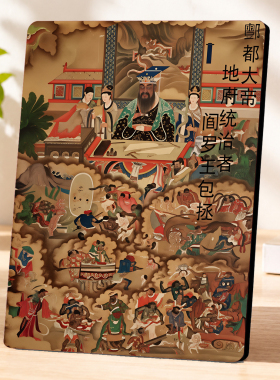 酆都大帝
地府统治者
阎罗王包拯